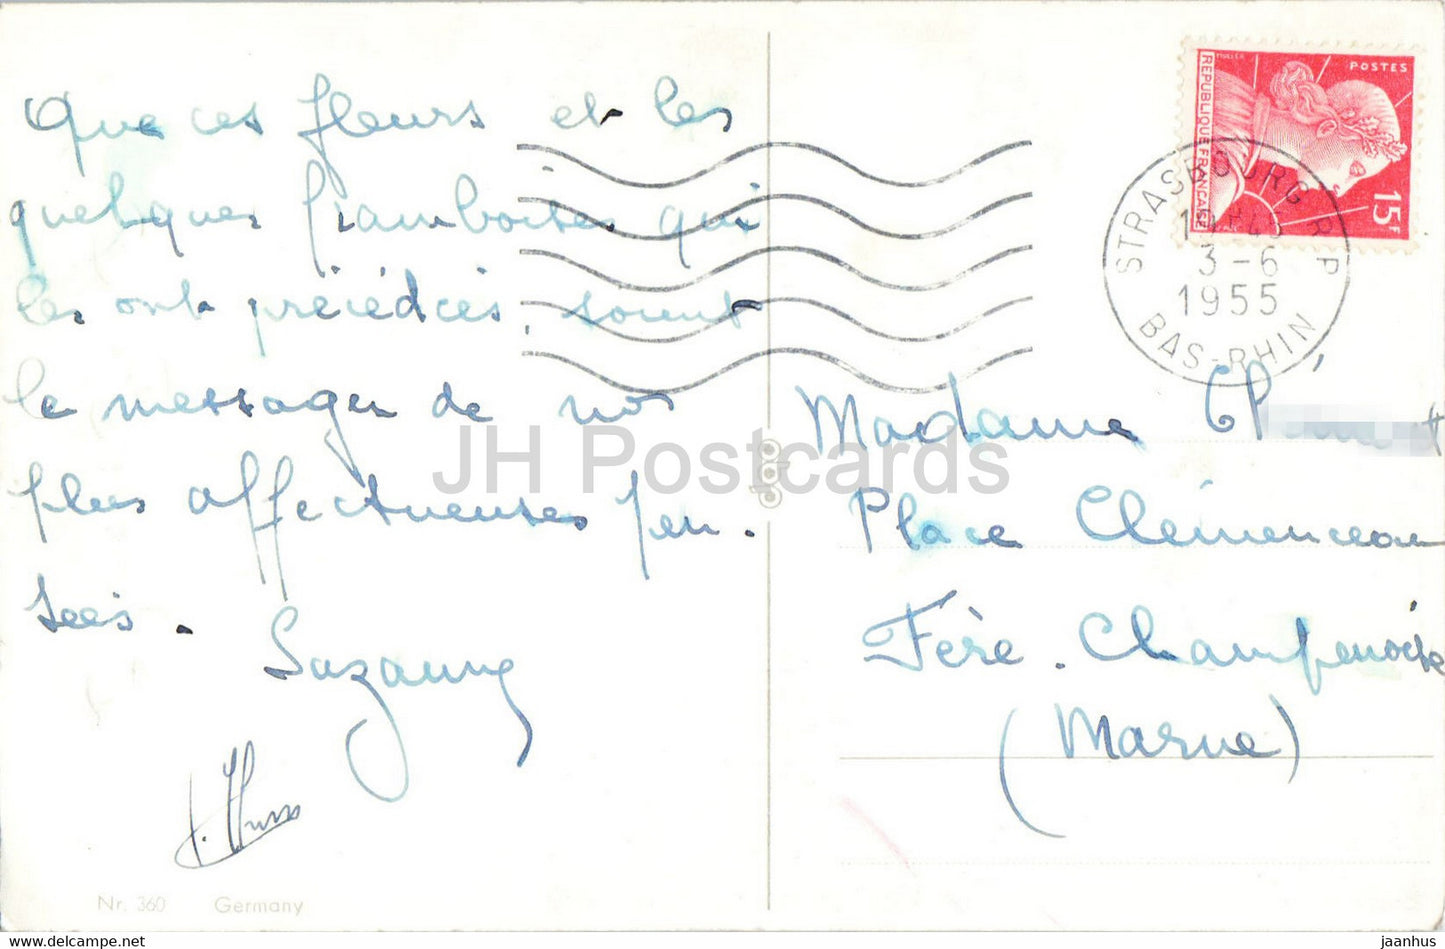 Que ces fleurs et les
quelques framboises qui
les ont précédées, soient
le messager de nos
plus affectueuses pen-
sées.
Suzanne
Nr. 360 Germany
JH Postcards
dgp
MULLER
POSTES
REPUBLIQUE FRANÇAISE
15F
STRASBOURG R.P
3-6
1955
BAS-RHIN
Madame
Place Clémenceau
Fère-Champenoise
(Marne)
www.delcampe.net
jaanhus